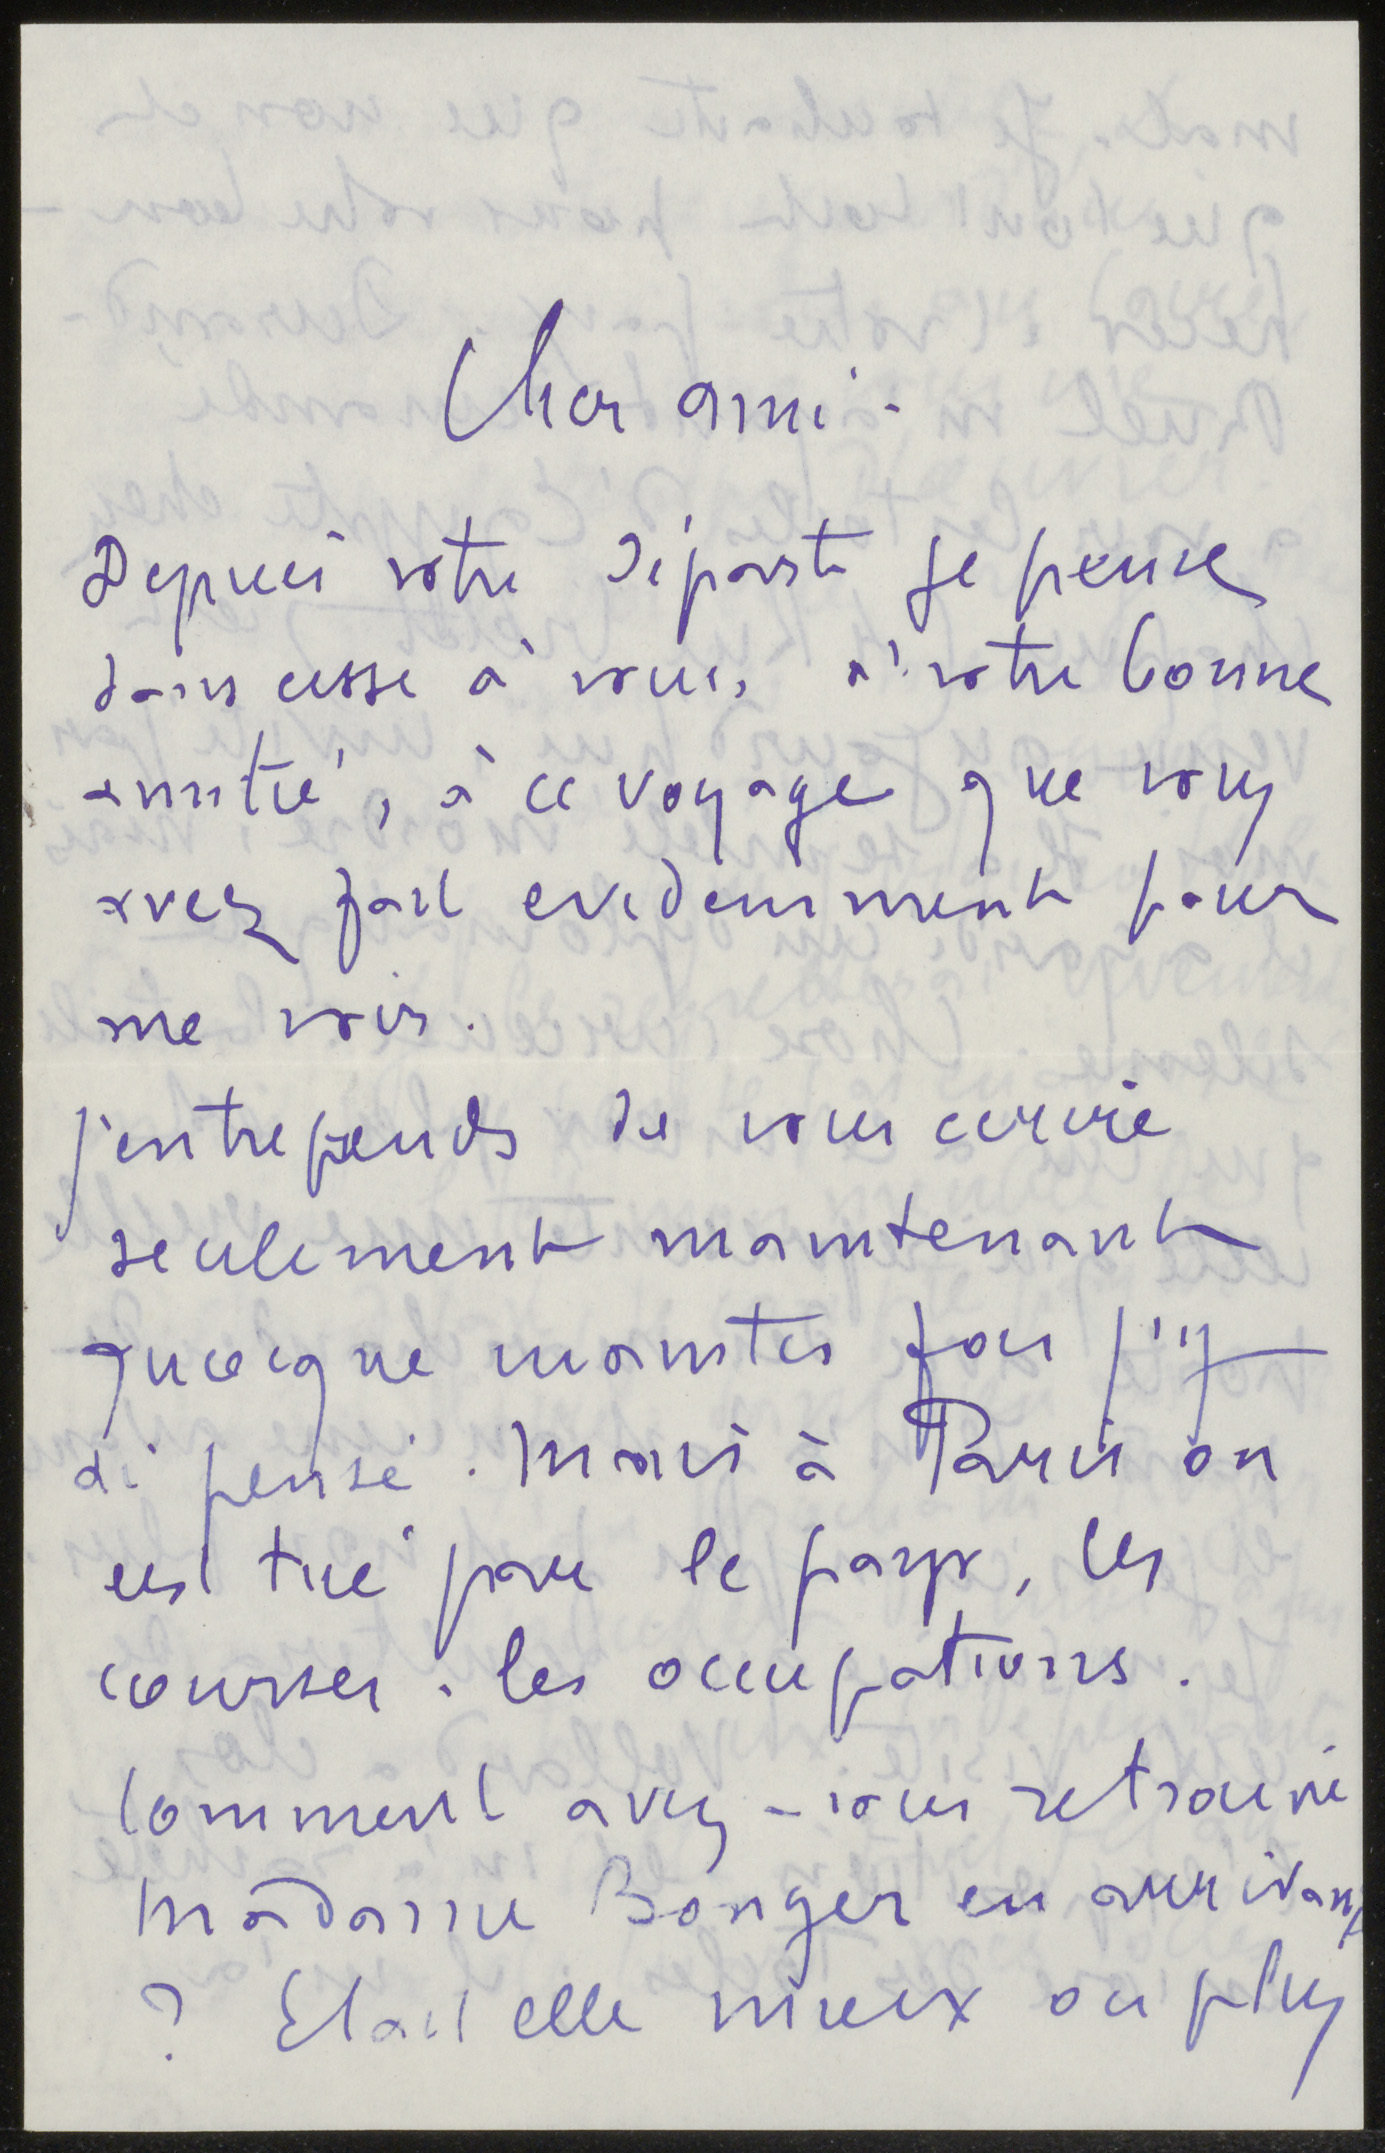 Cher ami -
Depuis votre départ je pense
sans cesse à vous, à votre bonne
amitié, à ce voyage que vous
avez fait evidemment pour
me voir.
J'entreprends de vous ecrire
seulement maintenant
quoique maintes fois j'y
ai pensé. Mais à Paris on
est tué par le pays, les
courses. les occupations.
Comment avez-vous retrouvé
Madame Bonger en arrivant
? Etait elle mieux ou plus